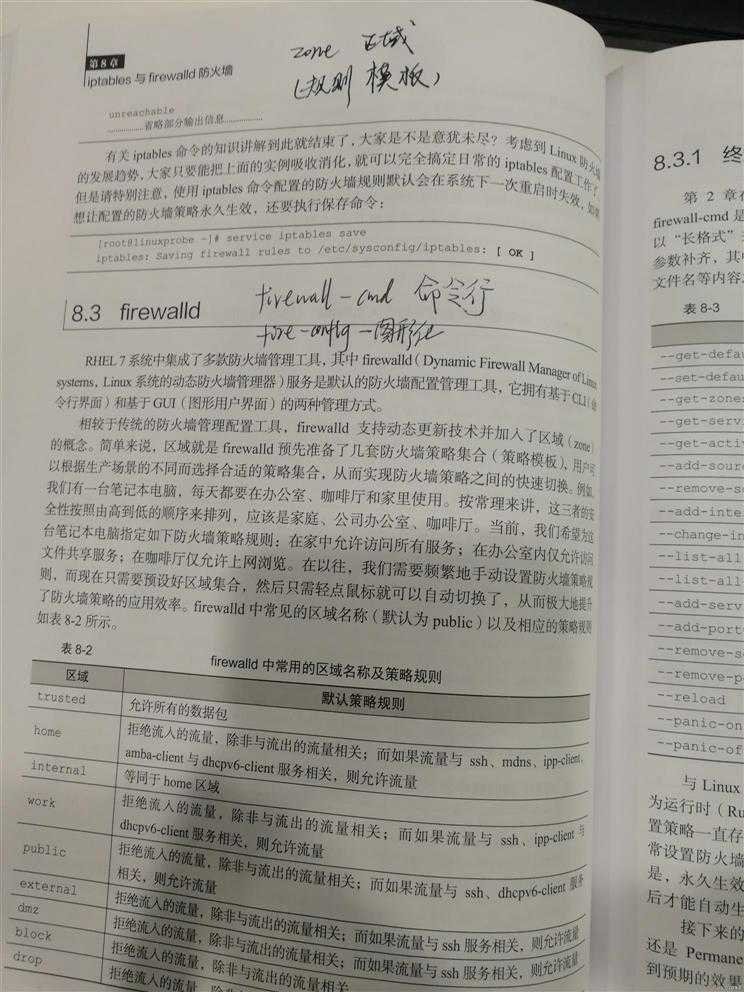 第8章
iptables 与 firewalld 防火墙
zone 区域
(规则 模板)
unreachable
………………省略部分输出信息………………
有关 iptables 命令的知识讲解到此就结束了，大家是不是意犹未尽？考虑到 Linux 防火墙
的发展趋势，大家只要能把上面的实例吸收消化，就可以完全搞定日常的 iptables 配置工作了。
但是请特别注意，使用 iptables 命令配置的防火墙规则默认会在系统下一次重启时失效，如果
想让配置的防火墙策略永久生效，还要执行保存命令：
[root@linuxprobe ~]# service iptables save
iptables: Saving firewall rules to /etc/sysconfig/iptables: [ OK ]
8.3 firewalld
firewall-cmd 命令行
fire-config 一图形化
RHEL 7 系统中集成了多款防火墙管理工具，其中 firewalld（Dynamic Firewall Manager of Linux
systems，Linux 系统的动态防火墙管理器）服务是默认的防火墙配置管理工具，它拥有基于 CLI（命
令行界面）和基于 GUI（图形用户界面）的两种管理方式。
相较于传统的防火墙管理配置工具，firewalld 支持动态更新技术并加入了区域（zone）
的概念。简单来说，区域就是 firewalld 预先准备了几套防火墙策略集合（策略模板），用户可
以根据生产场景的不同而选择合适的策略集合，从而实现防火墙策略之间的快速切换。例如，
我们有一台笔记本电脑，每天都要在办公室、咖啡厅和家里使用。按常理来讲，这三者的安
全性按照由高到低的顺序来排列，应该是家庭、公司办公室、咖啡厅。当前，我们希望为这
台笔记本电脑指定如下防火墙策略规则：在家中允许访问所有服务；在办公室内仅允许访问
文件共享服务；在咖啡厅仅允许上网浏览。在以往，我们需要频繁地手动设置防火墙策略规
则，而现在只需要预设好区域集合，然后只需轻点鼠标就可以自动切换了，从而极大地提升
了防火墙策略的应用效率。firewalld 中常见的区域名称（默认为 public）以及相应的策略规则
如表 8-2 所示。
表 8-2
firewalld 中常用的区域名称及策略规则
区域 默认策略规则
trusted 允许所有的数据包
home 拒绝流入的流量，除非与流出的流量相关；而如果流量与 ssh、mdns、ipp-client、
amba-client 与 dhcpv6-client 服务相关，则允许流量
internal 等同于 home 区域
work 拒绝流入的流量，除非与流出的流量相关；而如果流量与 ssh、ipp-client 与
dhcpv6-client 服务相关，则允许流量
public 拒绝流入的流量，除非与流出的流量相关；而如果流量与 ssh、dhcpv6-client 服务
相关，则允许流量
external 拒绝流入的流量，除非与流出的流量相关；而如果流量与 ssh 服务相关，则允许流量
dmz 拒绝流入的流量，除非与流出的流量相关；而如果流量与 ssh 服务相关，则允许流量
block 拒绝流入的流量，除非与流出的流量相关
drop 拒绝流入的流量，除非与流出的流量相关
8.3.1 终
第 2 章在
firewall-cmd 是
以“长格式”
参数补齐，其中
文件名等内容
表 8-3
--get-defau
--set-defau
--get-zone
--get-serv
--get-acti
--add-sour
--remove-s
--add-inte
--change-in
--list-all
--list-all
--add-serv
--add-port
--remove-s
--remove-p
--reload
--panic-on
--panic-of
与 Linux
为运行时（Ru
置策略一直存
常设置防火墙
是，永久生效
后才能自动生
接下来的
还是 Permane
到预期的效果